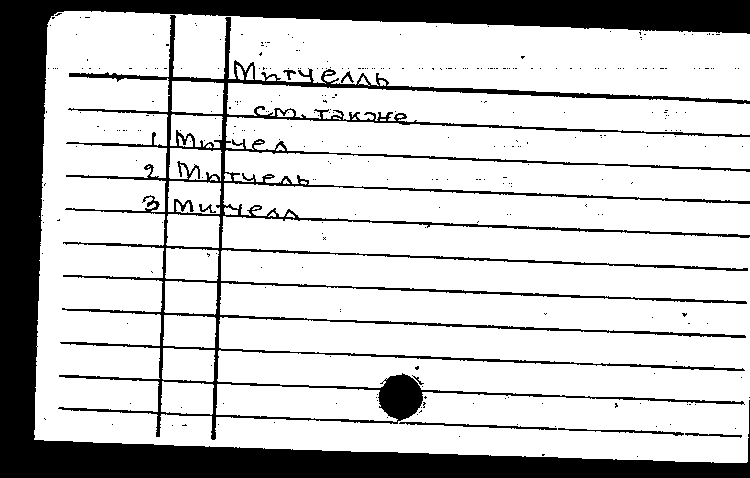 Митчелль
см. также
1. Митчел
2. Митчель
3 Митчелл